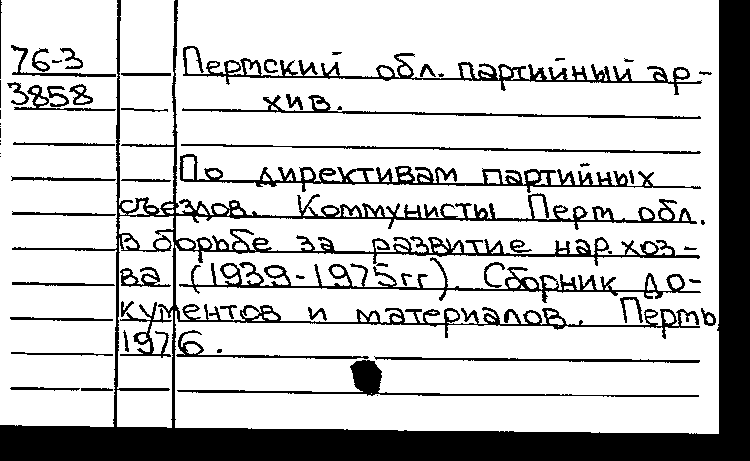 76-3 Пермский обл. партийный ар-
3858 хив.
По директивам партийных
съездов. Коммунисты Перм. обл.
в борьбе за развитие нар. хоз-
ва (1939-1975гг). Сборник до-
кументов и материалов. Пермь
1976.